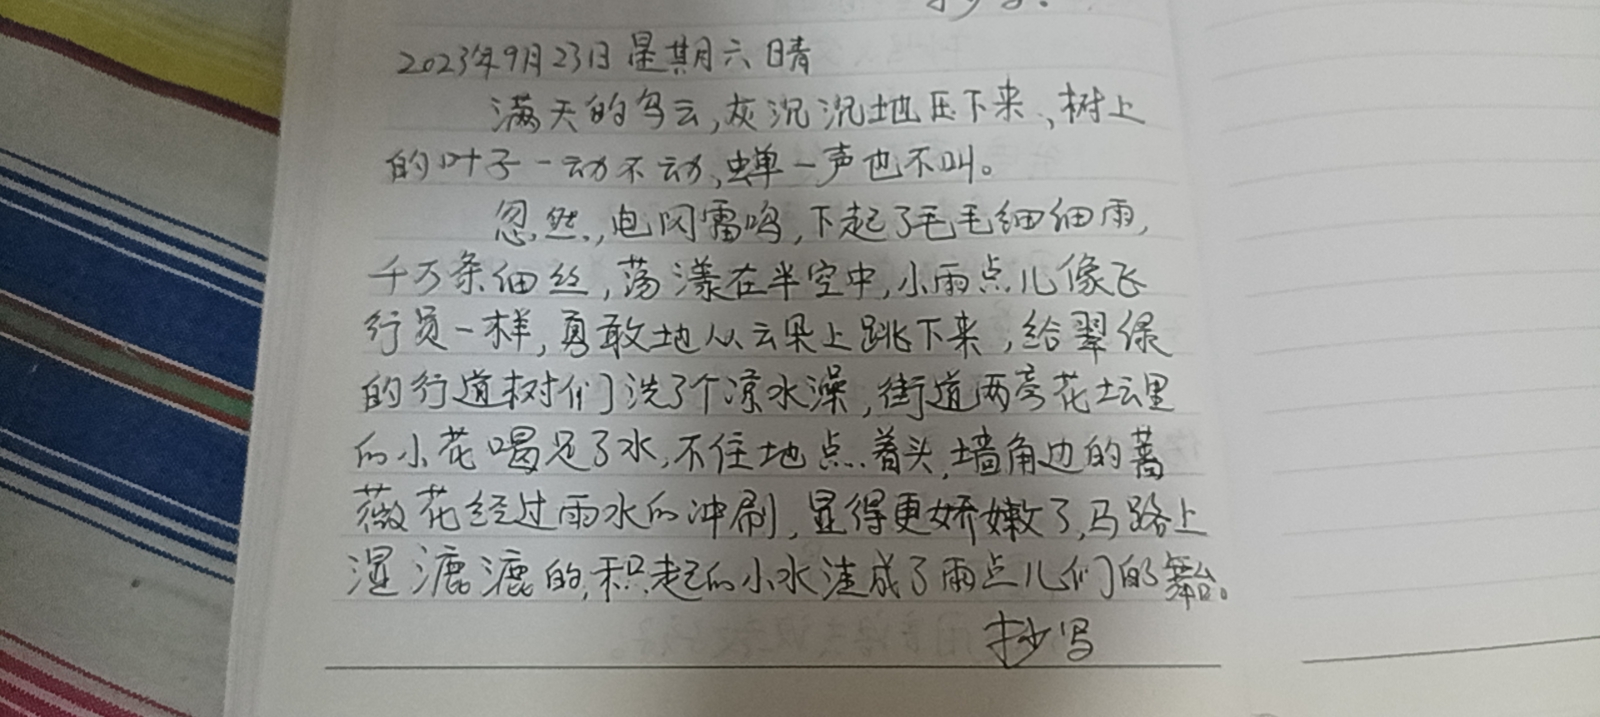 2023年9月23日 星期六 晴
满天的乌云,灰沉沉地压下来,树上
的叶子一动不动,蝉一声也不叫。
忽然,电闪雷鸣,下起了毛毛细细雨,
千万条细丝,荡漾在半空中,小雨点儿像飞
行员一样,勇敢地从云朵上跳下来,给翠绿
的行道树们洗了个凉水澡,街道两旁花坛里
的小花喝足了水,不住地点着头,墙角边的蔷
薇花经过雨水的冲刷,显得更娇嫩了,马路上
湿漉漉的,积起的小水洼成了雨点儿们的舞台。
抄写